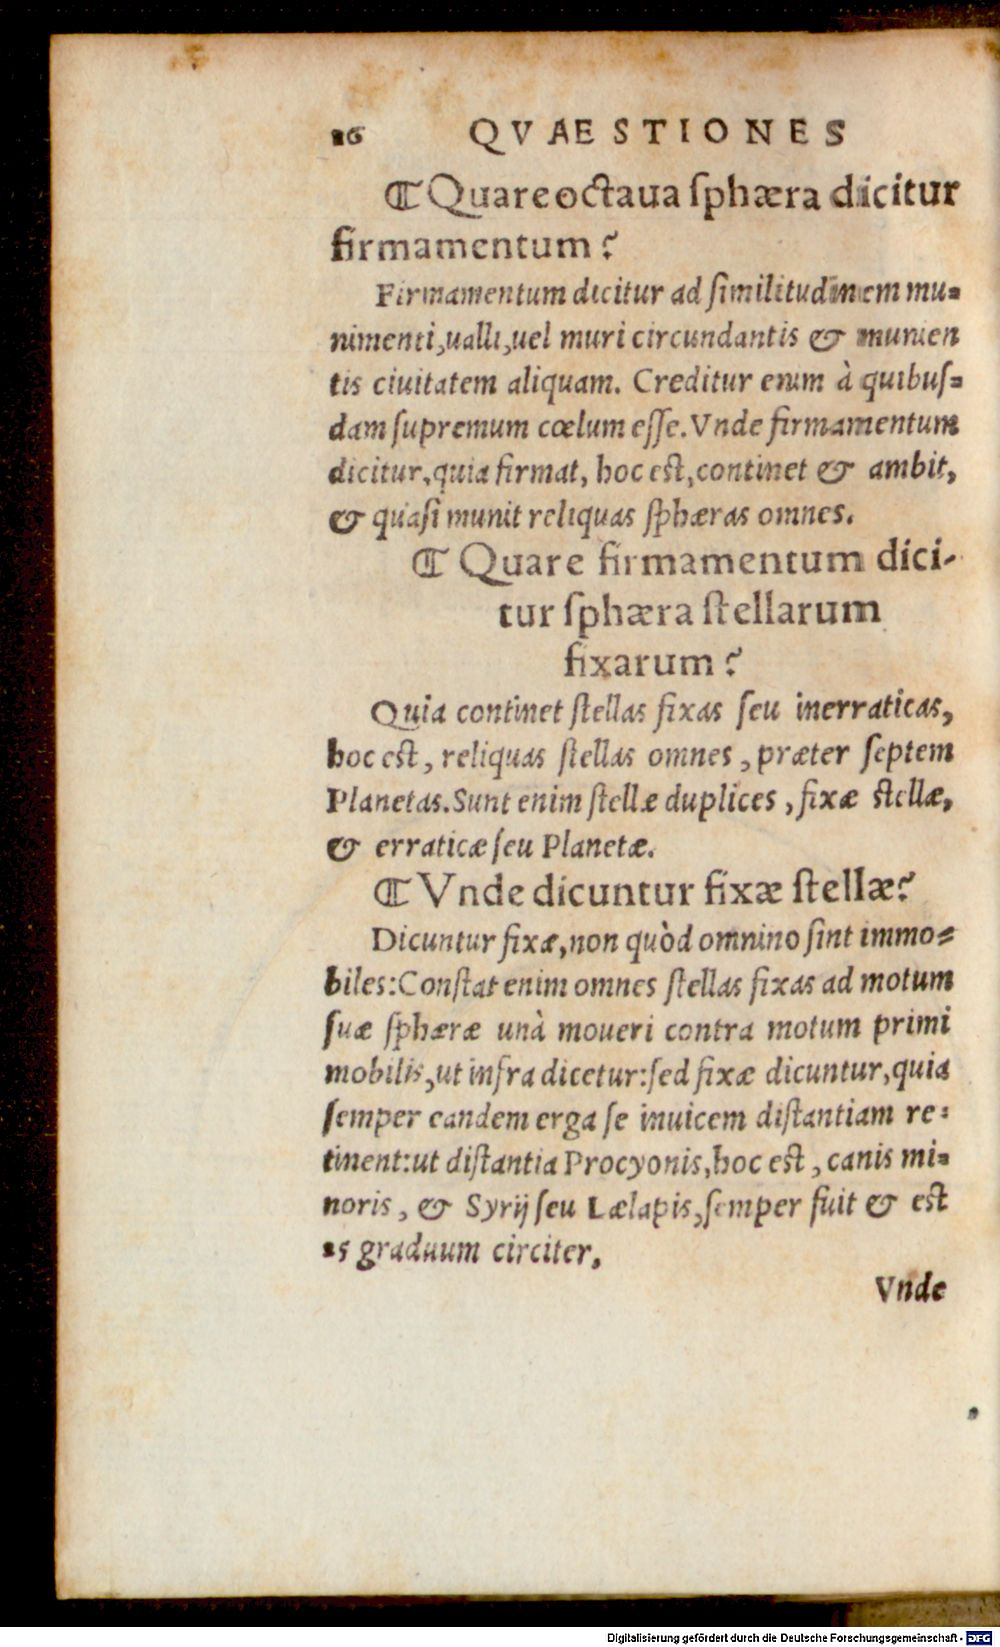 26 QVAESTIONES
¶ Quare octaua ſphæra dicitur
firmamentum?
Firmamentum dicitur ad ſimilitudinem mu-
nimenti, ualli, uel muri circundantis & munien
tis ciuitatem aliquam. Creditur enim à quibuſ-
dam ſupremum cœlum eſſe. Vnde firmamentum
dicitur, quia firmat, hoc eſt, continet & ambit,
& quaſi munit reliquas ſphæras omnes.
¶ Quare firmamentum dici-
tur ſphæra ſtellarum
fixarum?
Quia continet ſtellas fixas ſeu inerraticas,
hoc eſt, reliquas ſtellas omnes, præter ſeptem
Planetas. Sunt enim ſtellæ duplices, fixæ ſtellæ,
& erraticæ ſeu Planetæ.
¶ Vnde dicuntur fixæ ſtellæ?
Dicuntur fixæ, non quòd omnino ſint immo-
biles: Conſtat enim omnes ſtellas fixas ad motum
ſuæ ſphæræ unà moueri contra motum primi
mobilis, ut infra dicetur: ſed fixæ dicuntur, quia
ſemper eandem erga ſe inuicem diſtantiam re-
tinent: ut diſtantia Procyonis, hoc eſt, canis mi-
noris, & Syrij ſeu Lælapis, ſemper fuit & eſt
25 graduum circiter,
Vnde
Digitalisierung gefördert durch die Deutsche Forschungsgemeinschaft - DFG